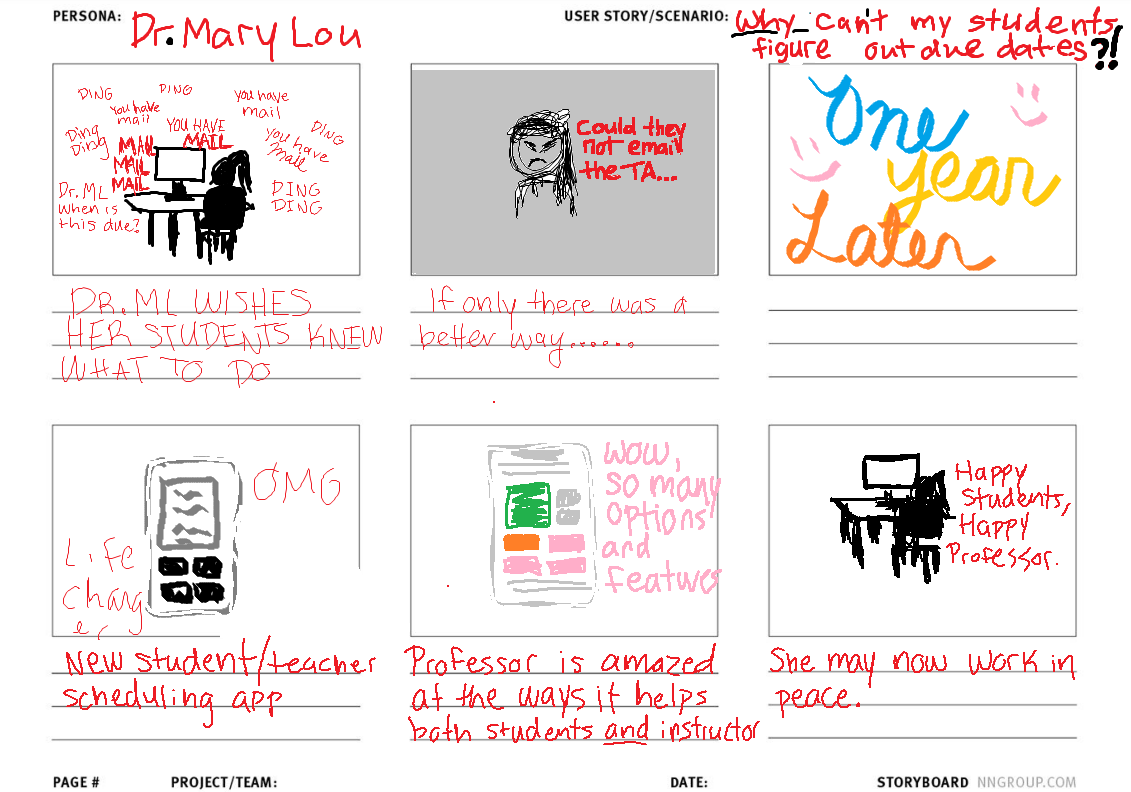 PERSONA: Dr. Mary Lou
USER STORY/SCENARIO: Why can't my students
figure out due dates?!
DING
DING
You have
mail
you have
mail
Ding
Ding
MAIL
MAIL
MAIL
YOU HAVE
MAIL
DING
you have
mail
Dr. ML
when is
this due?
DING
DING
DR. ML WISHES
HER STUDENTS KNEW
WHAT TO DO
Could they
not email
the TA...
If only there was a
better way......
One
year
Later
OMG
Life
chang
er
New student/teacher
scheduling app
Wow,
so many
options
and
features
Professor is amazed
at the ways it helps
both students and instructor
Happy
Students,
Happy
Professor.
She may now work in
peace.
PAGE # PROJECT/TEAM: DATE: STORYBOARD NNGROUP.COM